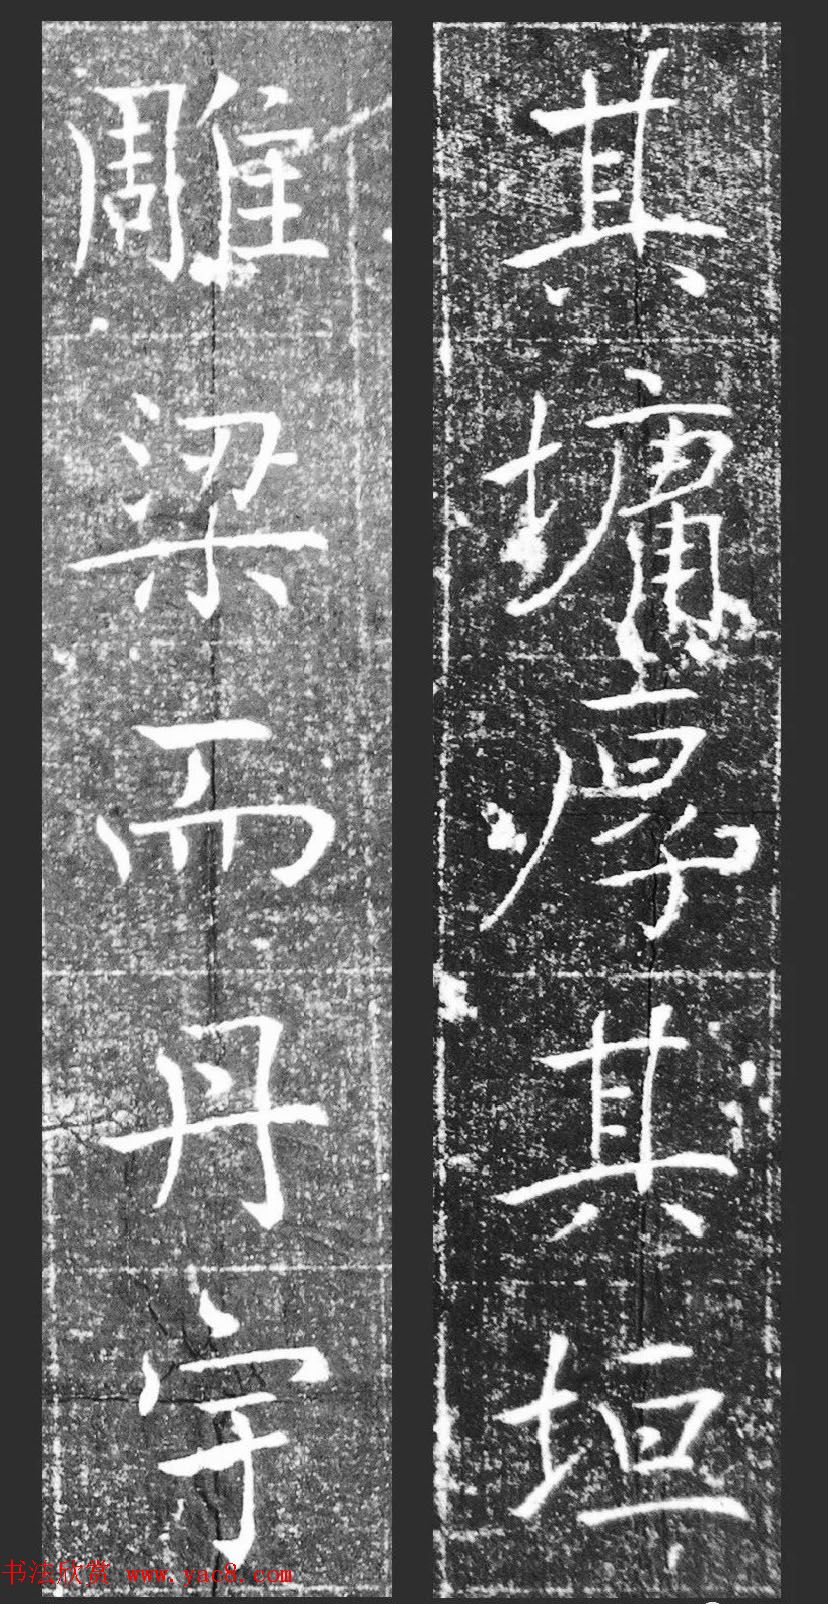 其墉厚其垣
雕梁而丹宇
书法欣赏 www.yac8.com